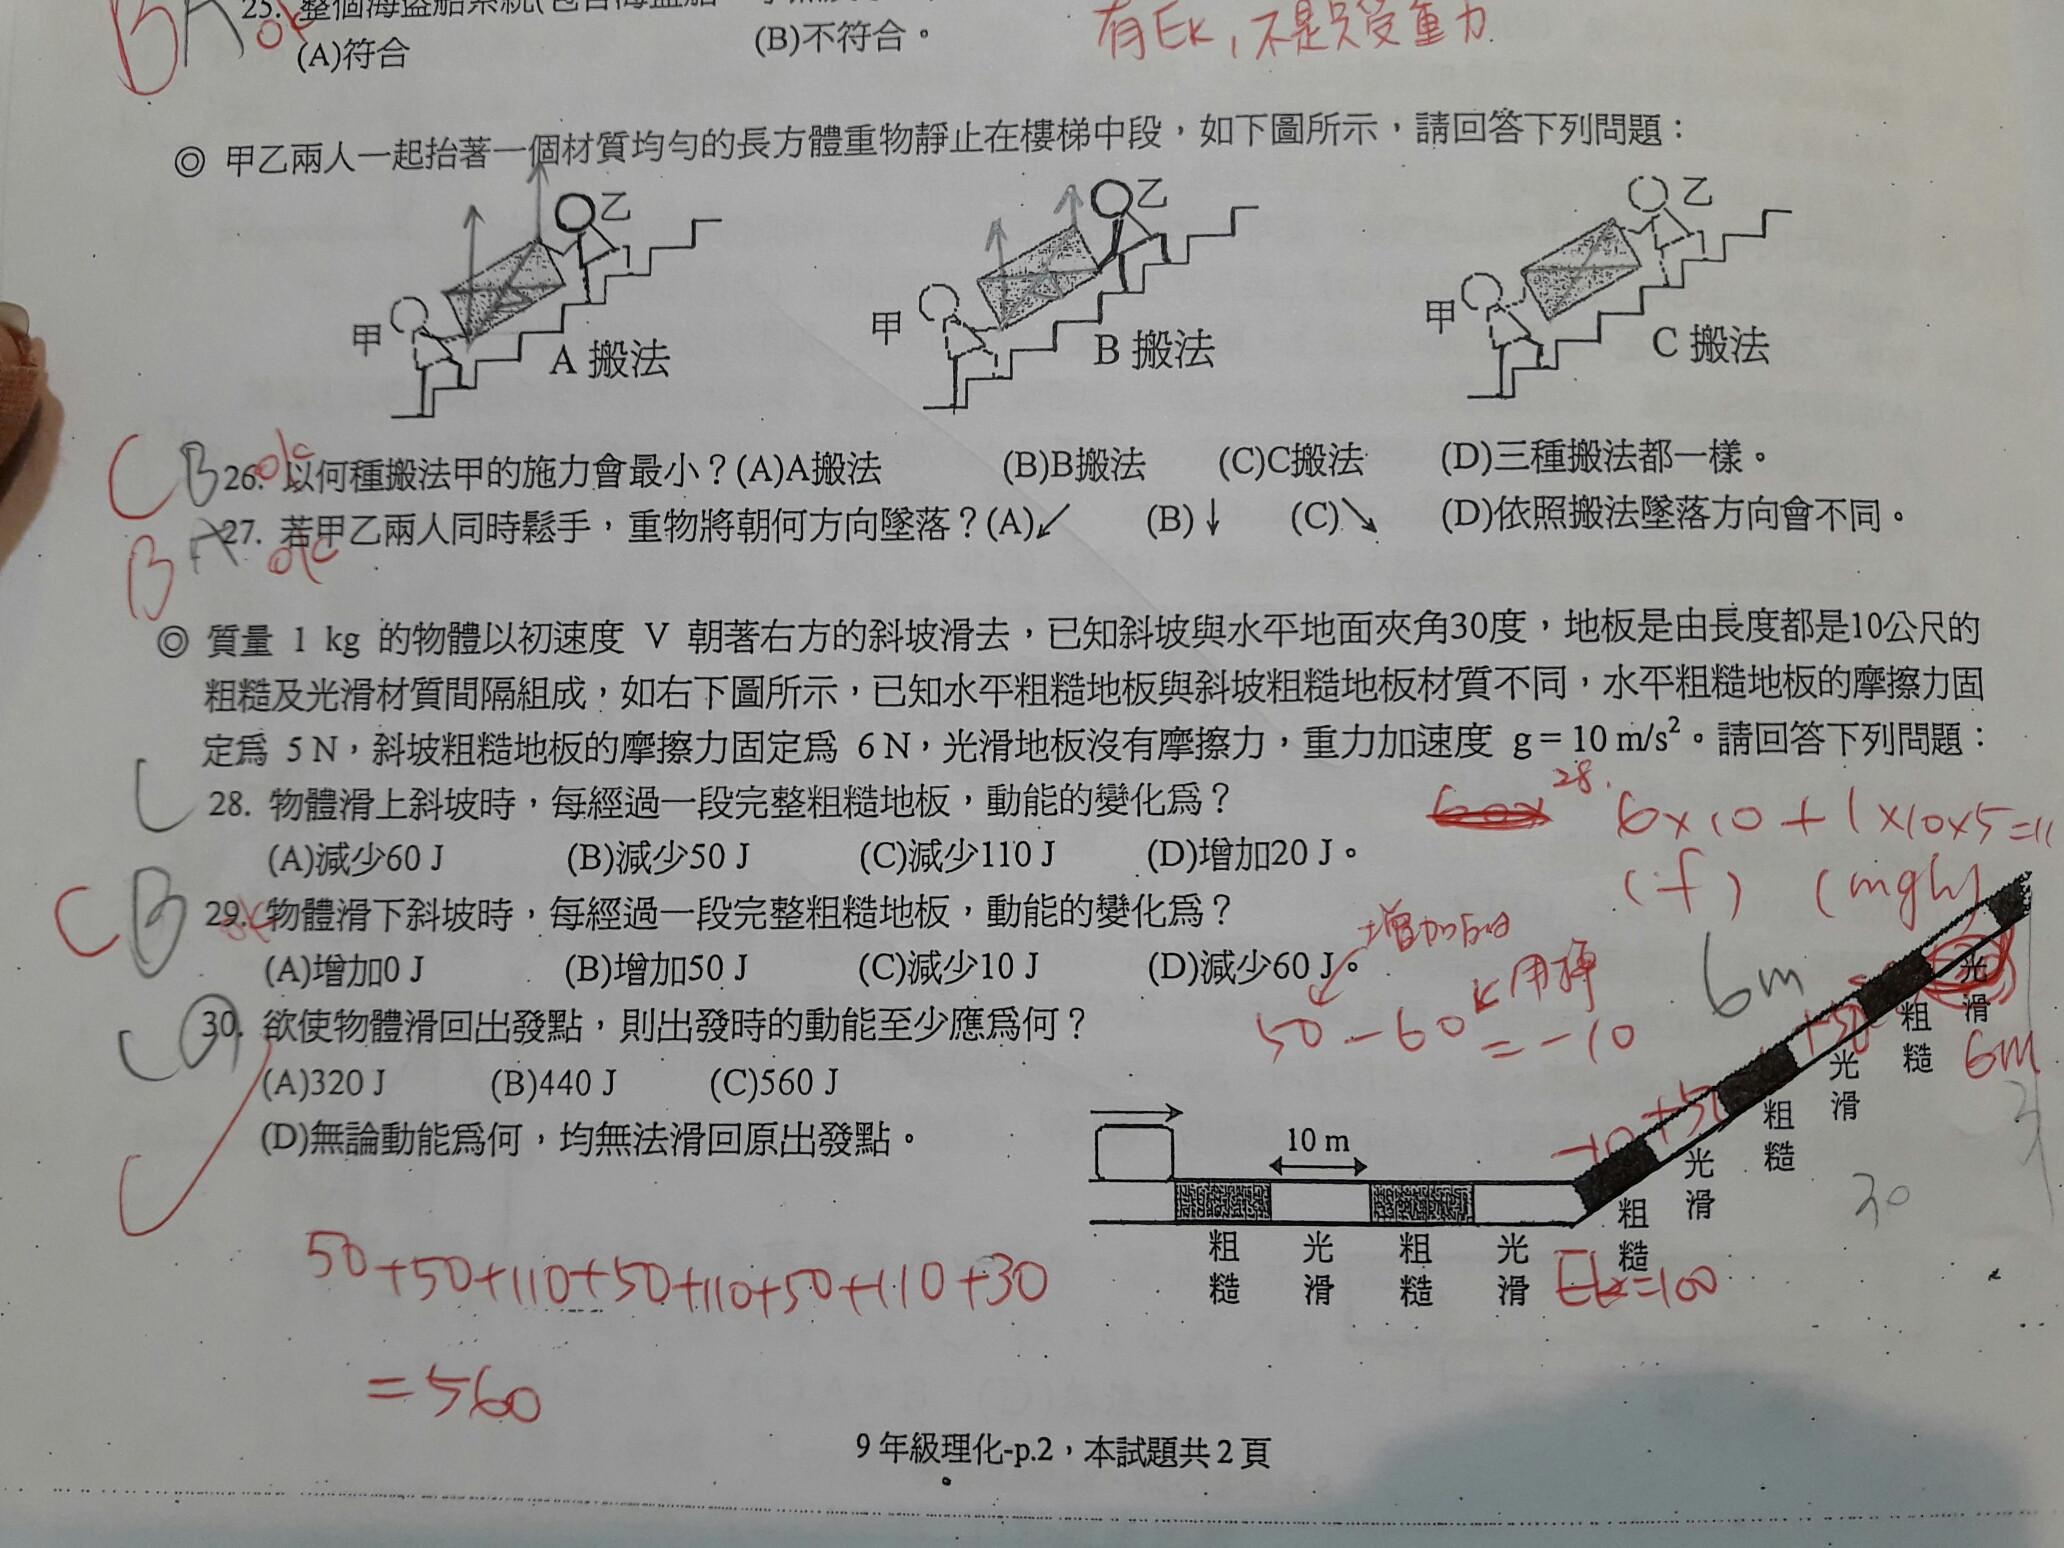 25. 整個海盜船系統(包含海盜船
(A)符合 (B)不符合。
有Ek,不是只受重力
◎ 甲乙兩人一起抬著一個材質均勻的長方體重物靜止在樓梯中段，如下圖所示，請回答下列問題：
乙 乙 乙
甲 甲 甲
A 搬法 B 搬法 C 搬法
C B 26. 以何種搬法甲的施力會最小？(A)A搬法 (B)B搬法 (C)C搬法 (D)三種搬法都一樣。
B A 27. 若甲乙兩人同時鬆手，重物將朝何方向墜落？(A)↙ (B)↓ (C)↘ (D)依照搬法墜落方向會不同。
◎ 質量 1 kg 的物體以初速度 V 朝著右方的斜坡滑去，已知斜坡與水平地面夾角30度，地板是由長度都是10公尺的
粗糙及光滑材質間隔組成，如右下圖所示，已知水平粗糙地板與斜坡粗糙地板材質不同，水平粗糙地板的摩擦力固
定為 5 N，斜坡粗糙地板的摩擦力固定為 6 N，光滑地板沒有摩擦力，重力加速度 g = 10 m/s²。請回答下列問題：
C 28. 物體滑上斜坡時，每經過一段完整粗糙地板，動能的變化為？
28. 6×10 + 1×10×5=11
(A)減少60 J (B)減少50 J (C)減少110 J (D)增加20 J。
(f) (mgh)
C B 29. 物體滑下斜坡時，每經過一段完整粗糙地板，動能的變化為？
增加的
(A)增加0 J (B)增加50 J (C)減少10 J (D)減少60 J。
用掉
50-60=-10
6m
30. 欲使物體滑回出發點，則出發時的動能至少應為何？
(A)320 J (B)440 J (C)560 J
(D)無論動能為何，均無法滑回原出發點。
10 m
粗糙 光滑 粗糙 光滑 粗糙 光滑 粗糙 光滑 粗糙 光滑
-10 +50 +50
6m
30
Ek=100
50+50+110+50+110+50+110+30
=560
9 年級理化-p.2，本試題共 2 頁